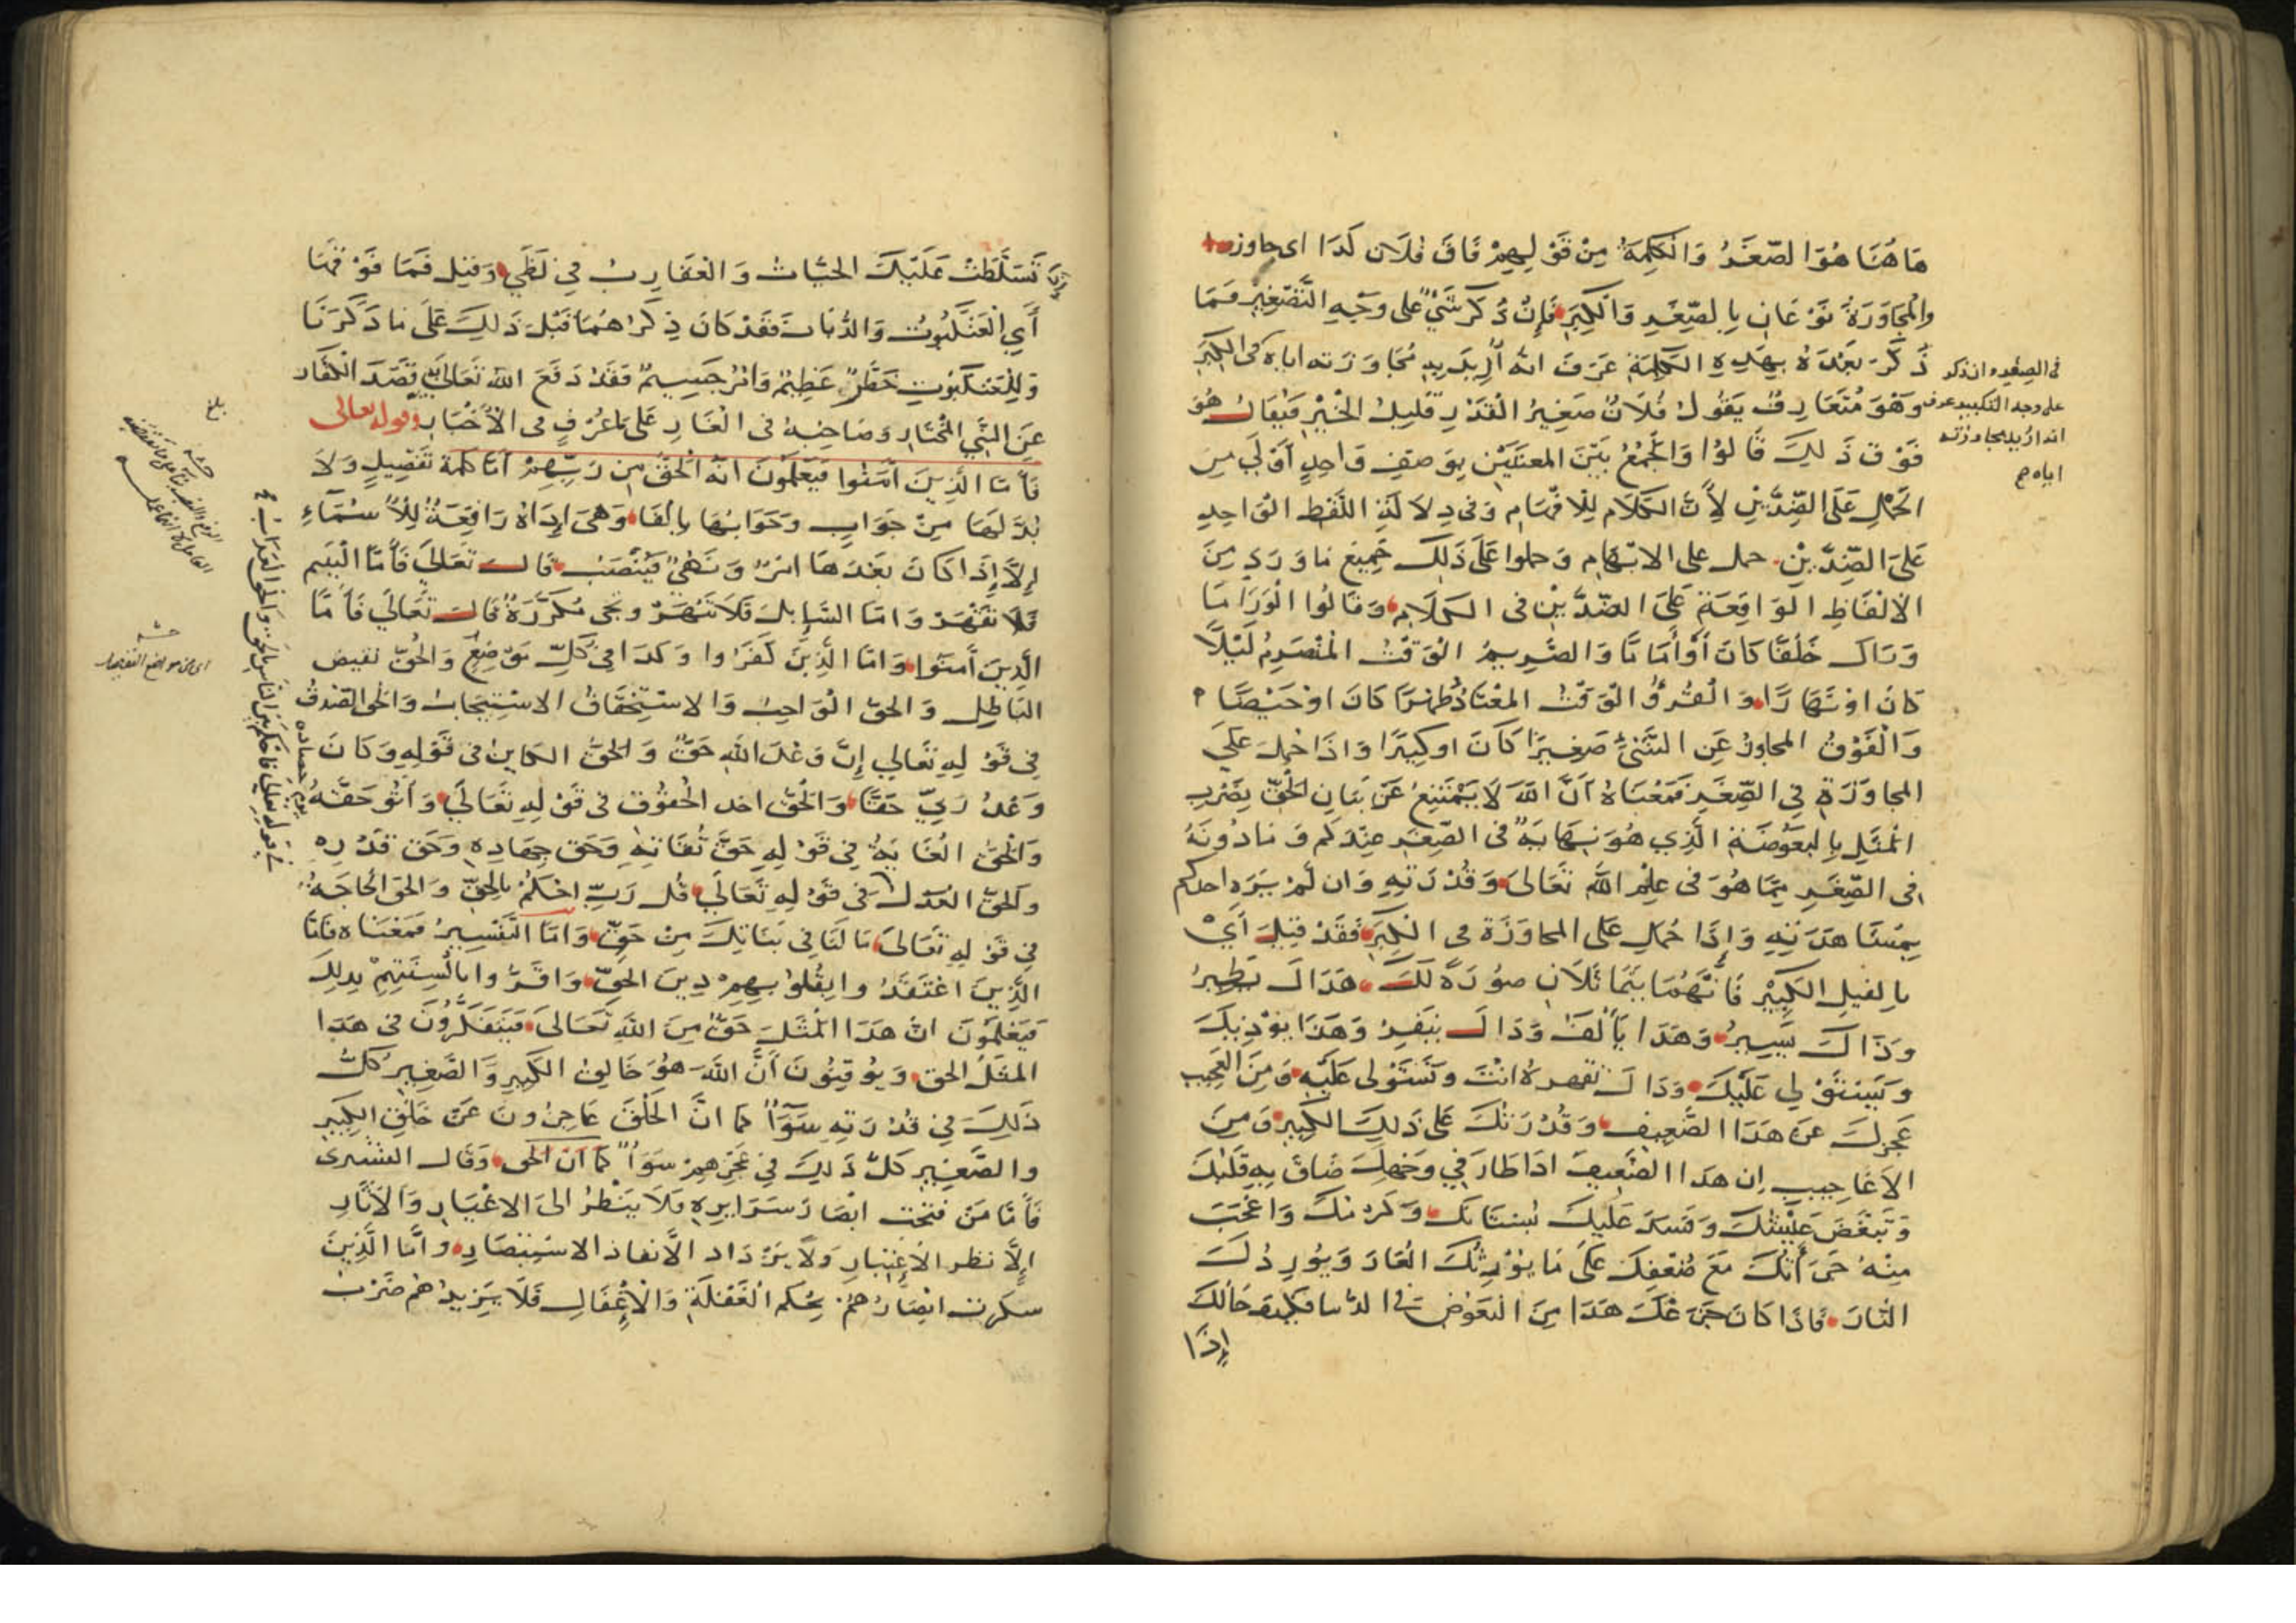 هَاهُنَا هُوَ الصِّغَرُ وَالْكَلِمَةُ مِنْ قَوْلِهِمْ فَاقَ فُلَان كَذَا اى جاوزه
والْمُجَاوَزَةُ نَوْعَانِ بِالصِّغَرِ وَالْكِبَرِ فَإِنْ ذُكِرَ شَيْءٌ على وجْهِ التَّصْغِيْرِ فَمَا
ذُكِرَ بَعْدَهُ بِهَذِهِ الكَلِمَةِ عَرَفَ انه اُرِيْدَ بِهِ مُجَاوَزَته اياه فى الكِبَرِ
وَهُوَ مُتَعَارفٌ يَقُولُ فُلَانٌ صَغِيرُ الْقَدْرِ قَلِيلُ الْخَيْرِ فَيُقَالُ هُوَ
فَوْقَ ذَلِكَ قَالُوْا وَالْجَمْعُ بَيْنَ المعنَيَيْنِ بِوَصفٍ وَاحِدٍ أَوْلَى مِنَ
الْحَمْلِ عَلَى الضِّدَّيْنِ لِأَنَّ الكَلَام لِلْافْهَامِ وَفى دِلَالَةِ اللَّفْظِ الْوَاحِدِ
عَلَى الضِّدَّيْنِ حمل على الابْهَامِ وَحملوا عَلَى ذَلِكَ جَمِيْعَ مَا وَرَدَ مِنَ
الْالْفَاظِ الْوَاقِعَةِ عَلَى الضِّدَّيْنِ فى الكَلَامِ وَقَالُوا الْوَرَا مَا
وَرَاكَ خَلْفًا كَانَ أَوْ أَمَامًا وَالصَّرِيمُ الْوَقْتُ الْمُنْصَرِمُ لَيْلًا
كَانَ اوْ نَهَارًا وَالْقُرْؤُ الْوَقْتُ المعْتَادُ طُهْرًا كَانَ اوْ حَيْضًا
وَالْفَوْقُ المجاوزُ عَنِ الشَّيْءِ صَغِيرًا كَانَ اوكَبِيْرًا وَاذَا حُمِلَ عَلَى
المجاوَزَةِ فِي الصِّغَرِ فَمَعْنَاهُ اَنَّ اللّٰهَ لَا يَمْتَنِعُ عَنْ بَيَانِ الْحَقِّ بِضَرْبِ
الْمَثَلِ بِالْبَعُوضَةِ الَّذِي هُوَ نِهَايَةٌ فى الصِّغَرِ عِنْدَكُمْ وَمَا دُونَهُ
فى الصِّغَرِ مِمَّا هُوَ فى عِلْمِ اللّٰهِ تَعَالَى وَقُدْرَتِهِ وَان لَمْ يَرَهِ احدكم
بِمُشَاهَدَتِهِ وَإِذَا حُمِلَ عَلَى المجاوَزَة فى الْكِبَرِ فَقَدْ قِيْلَ أَيْ
بِالفيلِ الكَبِيْرِ فَاِنَّهُمَا يَتَمَاثَلَانِ صُوْرَةً لَكَ هَذَا لَ يَطِيرُ
وَذَاكَ يَسِيرُ وَهَذَا يَأْلَفُ وَذَاكَ يَنْفِرُ وَهَذَا يؤْذِيكَ
وَيَسْتَوْلِي عَلَيْكَ وَذَاكَ تقهرهُ انْتَ وَتَسْتَوْلِى عَلَيْهِ وَمِنَ الْعَجِيبِ
عَجْزُكَ عَنْ هَذَا الضَّعِيفِ وَقُدْرَتُكَ عَلَى ذَلِكَ الكَبِيرِ وَمِنَ
الاَعَاجِيبِ اِن هَذا الضَّعِيفَ اذَا طَارَ فِي وَجْهِكَ ضَاقَ بِهِ قَلْبُكَ
وَتَبَغَّضَ عَيْشُكَ وَفَسَدَ عَلَيْكَ بُسْتَانكَ وَكَرْمكَ وَاعْجَبُ
مِنْهُ اَنَّكَ مَعَ ضُعْفِكَ عَلَى مَا يُوْرِثُكَ الْعَارَ وَيُوْرِدُكَ
النَّارَ فَاذَا كَانَ هَذَا مِنَ الْبَعُوْضِ فى الدنيا فكيف حَالُكَ
إِذَا
فى الصِغر وان ذكر
على وجه التكبير عرف
انه اُريد مجاوزته
اياه صح
تَسَلَّطَتْ عَلَيْكَ الحيَّاتُ وَالْعَقَارِبُ فِي لَظَى وَقِيْلَ فَمَا فَوْقَهَا
أَيِ الْعَنْكَبُوْتِ وَالذُّبَابِ فَقَدْ كَانَ ذِكْرُهُمَا قَبْلَ ذَلِكَ عَلَى مَا ذَكَرْنَا
وَلِلْعَنْكَبُوْتِ خَطَرٌ عَظِيْمٌ وَامْرٌ جَسِيمٌ فَقَدْ دَفَعَ اللّٰهُ تَعَالَى بِهِ قَصْدَ الْكُفَّارِ
عَنِ النَّبِيِّ الْمُخْتَارِ وَصَاحِبِهُ فى الْغَارِ عَلَى مَا عُرِفَ فى الأخْبَارِ وقوله تعالى
فَأَمَّا الَّذِينَ آمَنُوا فَيَعْلَمُونَ انَّهُ الْحَقُّ مِن رَبِّهِمْ أَمَّا كلمة تَفْصِيلٍ وَلَا
بُدَّ لَهَا مِنْ جَوَابٍ وَجَوَابُهَا بِالْفَا وَهِىَ اَدَاةٌ رَافِعَةٌ لِلْأَسْمَآءِ
اِلَّا إِذَا كَانَ بَعْدَهَا امْرٌ وَنَهْيٌ فَيُنْصَبُ قَالَ تَعَالَى فَأَمَّا الْيَتِيم
فَلَا تَقْهَرْ وَامَّا السَّايِلَ فَلَا تَنْهَرْ وتجى مُكَرَّرَةً قَالَ تَعَالَى فَأَمَّا
الَّذِينَ آمَنُوا وَامَّا الَّذِينَ كَفَرُوا وَكَذَا فِي كُلِّ مَوْضِعٍ وَالْحَقُّ نقيض
البَاطِلِ وَالحقّ الْوَاجِبُ وَالاسْتِحْقَاقُ الاسْتِيجَابُ وَالحق الصِّدْقُ
فِي قَوْلِهِ تَعَالَى إِنَّ وَعْدَ اللّٰهِ حَقٌّ وَالْحَقُّ الكَايِنُ فى قَوْلِهِ وَكَانَ
وَعْدُ رَبِّي حَقًّا وَالْحَقُّ احد الْحُقُوْقِ فى قَوْلِهِ تَعَالَى وَآتُوْا حَقَّهُ
وَالْحَقُّ الْغَايَةُ فِي قَوْلِهِ حَقَّ تُقَاتِهِ وَحَقَّ جِهَادِهِ وَحَقَّ قَدْرِهِ
وَالْحَقُّ الْعَدْلُ فى قَوْلِهِ تَعَالَى قُل رَبِّ احْكُمْ بِالْحَقِّ وَالحَقُّ الْحَاجَةُ
فِي قَوْلِهِ تَعَالَى مَا لَنَا فِي بَنَاتِكَ مِنْ حَقٍّ وَامَّا التَّفْسِيرُ فَمَعْنَاهُ فَامَّا
الَّذِينَ اعْتَقَدُوا بِقُلُوْبِهِمْ دِينَ الْحَقِّ وَاقَرُّوا بِالْسِنَتِهِمْ بِذلِكَ
فَيَعْلَمُونَ انَّ هَذَا الْمَثَلَ حَقٌّ مِنَ اللّٰهِ تَعَالَى فَيَتَفَكَّرُوْنَ فى هَذَا
المَثَلِ الحق وَيُوْقِنُوْنَ أَنَّ اللّٰهَ هُوَ خَالِقُ الكَبِيرِ وَالصَّغِيرِ كُلُّ
ذَلِكَ فِي قُدْرَتِهِ سَوَآءٌ كَمَا انَّ الْخَلْقَ عَاجِزُونَ عَنْ خَلْقِ الْكَبِيرِ
والصَّغِيْرِ كُلُّ ذَلِكَ فِي عَجْزِهِمْ سَوَاءٌ وَقَالَ القشيرى
فَأَمَّا مَنْ فتحت ابْصَارُ سَرَايِرِهِ فَلَا يَنْظُرُ الىَ الاغْيَارِ وَالآثَارِ
اِلَّا نظر الاعْتِبَارِ وَلَا يَزْدَاد الَّا نفاذ الاسْتِبْصَارِ وامَّا الَّذِينَ
سكرت ابْصَارُهُمْ بِحُكْمِ الْغَفْلَةِ وَالْإِغْفَالِ فَلَا يَزِيدُهُمْ ضَرْبُ
يوم حصاده
بلغ